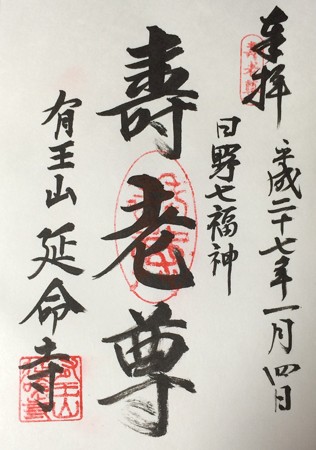 奉拝
平成二十七年一月四日
日野七福神
壽老尊
有王山 延命寺